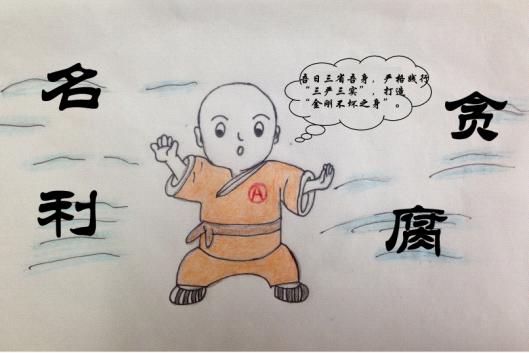 名
利
吾日三省吾身，严格践行
“三严三实”，打造
“金刚不坏之身”。
A
贪
腐